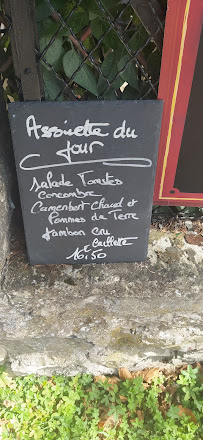 Assiette du
jour
Salade Tomates
Concombre
Camembert Chaud et
Pommes de Terre
Jambon Cru
Caillette
16,50